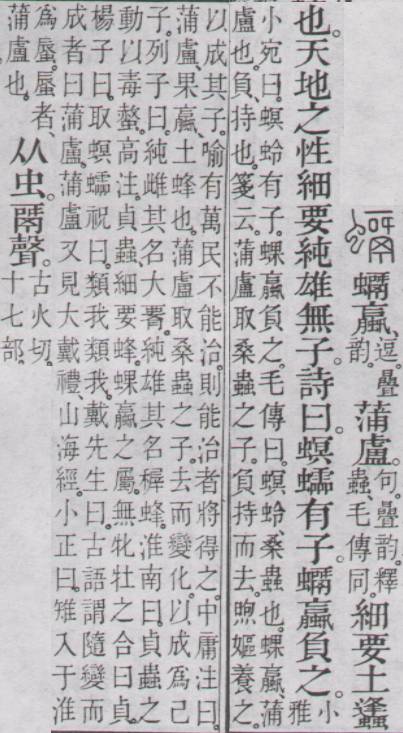 蠃、逗。疊韵。蒲盧。句。疊韵。釋蟲、毛傳同。細要土蠭
也。天地之性細要純雄無子。詩曰。螟蠕有子。蠃負之。小雅
小宛曰。螟蛉有子。蜾蠃負之。毛傳曰。螟蛉、桑蟲也。蜾蠃、蒲
盧也。負、持也。箋云。蒲盧取桑蟲之子。負持而去。煦嫗養之。
以成其子。喻有萬民不能治。則能治者將得之。中庸注曰。
蒲盧、果蠃。土蜂也。蒲盧取桑蟲之子。去而變化。以成爲己
子。列子曰。純雌其名大。純雄其名稺蜂。淮南曰。貞蟲之
動以毒螫。高注。貞蟲細要蜂。蜾蠃之屬。無牝牡之合曰貞。
楊子曰。取螟蠕祝曰。類我類我。戴先生曰。古語謂隨變而
成者曰蒲盧。蒲盧又見大戴禮、山海經。小正曰。雉入于淮
爲蜃。蜃者、
蒲盧也。
从虫。聲。古火切。十七部。